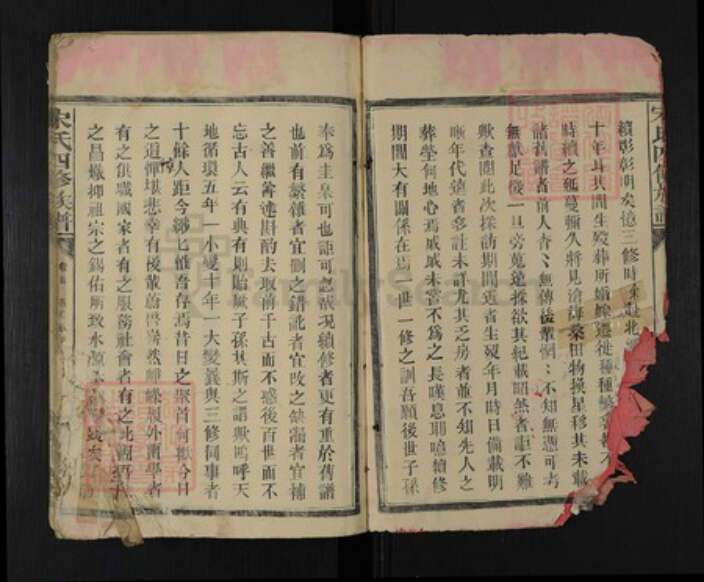 宋氏四修族譜
續彰彰明矣憶三修時
十年耳其間生歿葬所婚嫁遷徙種種繁
時續之延蔓彌久將見滄海桑田物換星移其未載
諸舊譜者前人杳杳無傳後輩惘惘不知無憑可考
無獻足徵一旦旁蒐遠採欲其紀載昭然者詎不難
歟查閱此次採訪期間近者生歿年月時日備載明
晰年代遠者多註未詳尤其乏房者並不知先人之
葬塋何地心焉戚戚未嘗不為之長嘆息耶噫續修
期間大有關係在焉一世一修之訓吾願後世子孫
奉為圭臬可也詎可忽哉現續修者更有重於舊譜
也前有繁雜者宜刪之錯訛者宜改之缺漏者宜補
之善繼善述斟酌去取前千古而不惑後百世而不
忘古人云有典有則貽厥子孫其斯之謂歟嗚呼天
地循環五年一小變十年一大變曩與三修同事者
十餘人距今
惟吾存焉昔日之聚首何歟今日
之追悼堪悲幸有後輩蔚
外
學者
有之供職國家者有之服務社會者有之此
之昌熾抑祖宗之錫佑所致水源
宋氏四修族譜